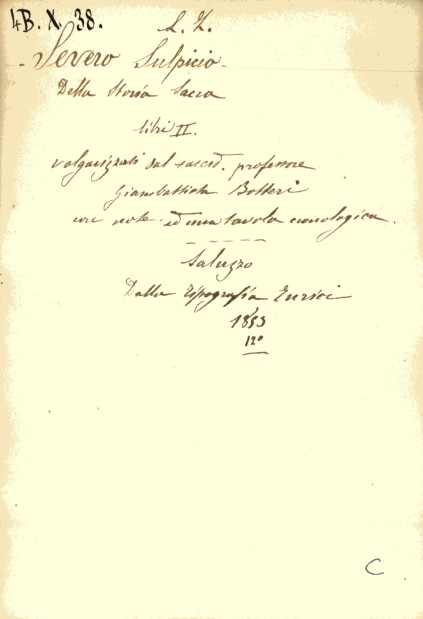 4B. X. 38.
S. Z.
- Severo Sulpicio -
Della Storia Sacra
libri II.
volgarizzati dal saced. professore
Giambattista Botteri
con note ed una tavola cronologica.
Saluzzo
Dalla Tipografia Enrici
1853
12°
C